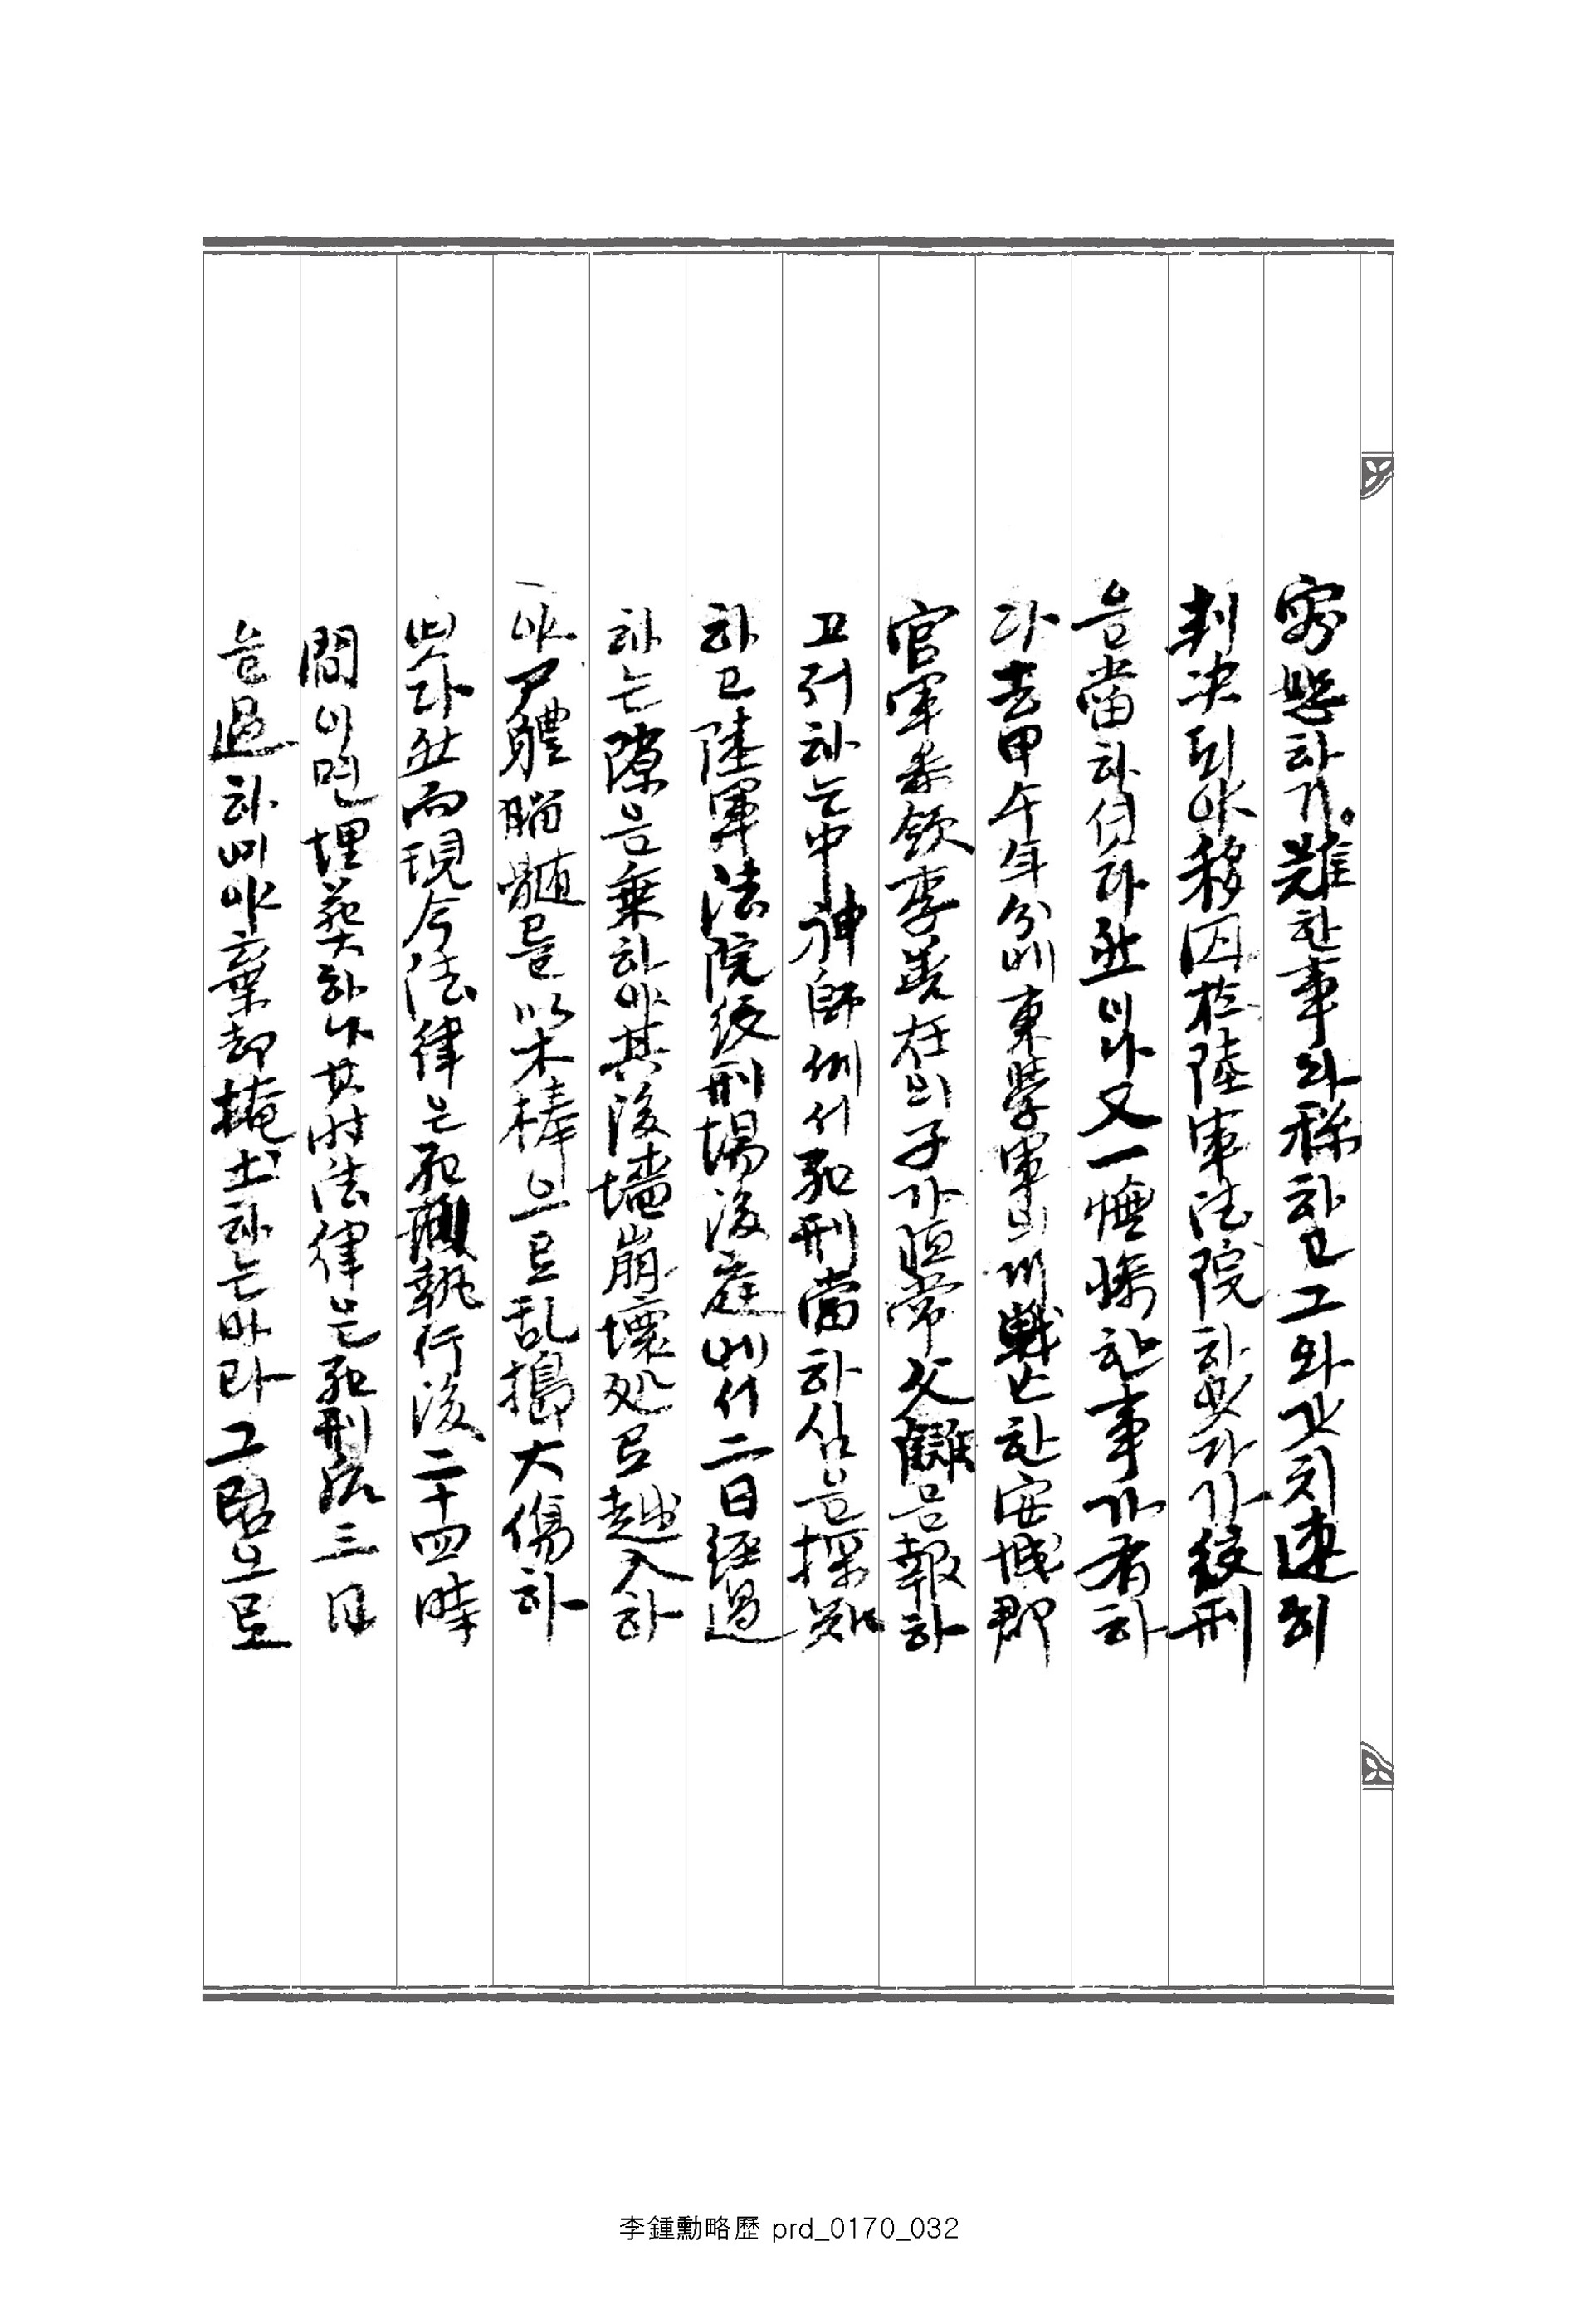 하기 難한 事와 稱하고 그와 갓치 速히
判决되야 移囚於陸軍法院하얏다가 絞刑
을 當하섯다 然이나 又一 한 事가 有하
다 去甲午年分에 東學軍의게 戰亡한 安城郡
官軍 領 李 在의 子가 恒常 父讎을 報하
고저 하는 中 神師게서 死刑 當하심을 探知
하고 陸軍法院 絞刑場 後庭에서 二日 經過
하는 隙을 乘하야 其 後墻 崩壞处로 越入하
야 尸體 腦髓를 以木棒으로 乱搗 大傷하
얏다 然而 現今 法律은 死刑 執行 後 二十四時
間이면 埋葬하나 其時 法律은 死刑 后 三日
을 過하여야 棄却 掩土하는 바라 그럼으로
李鍾勳略歷 prd_0170_032